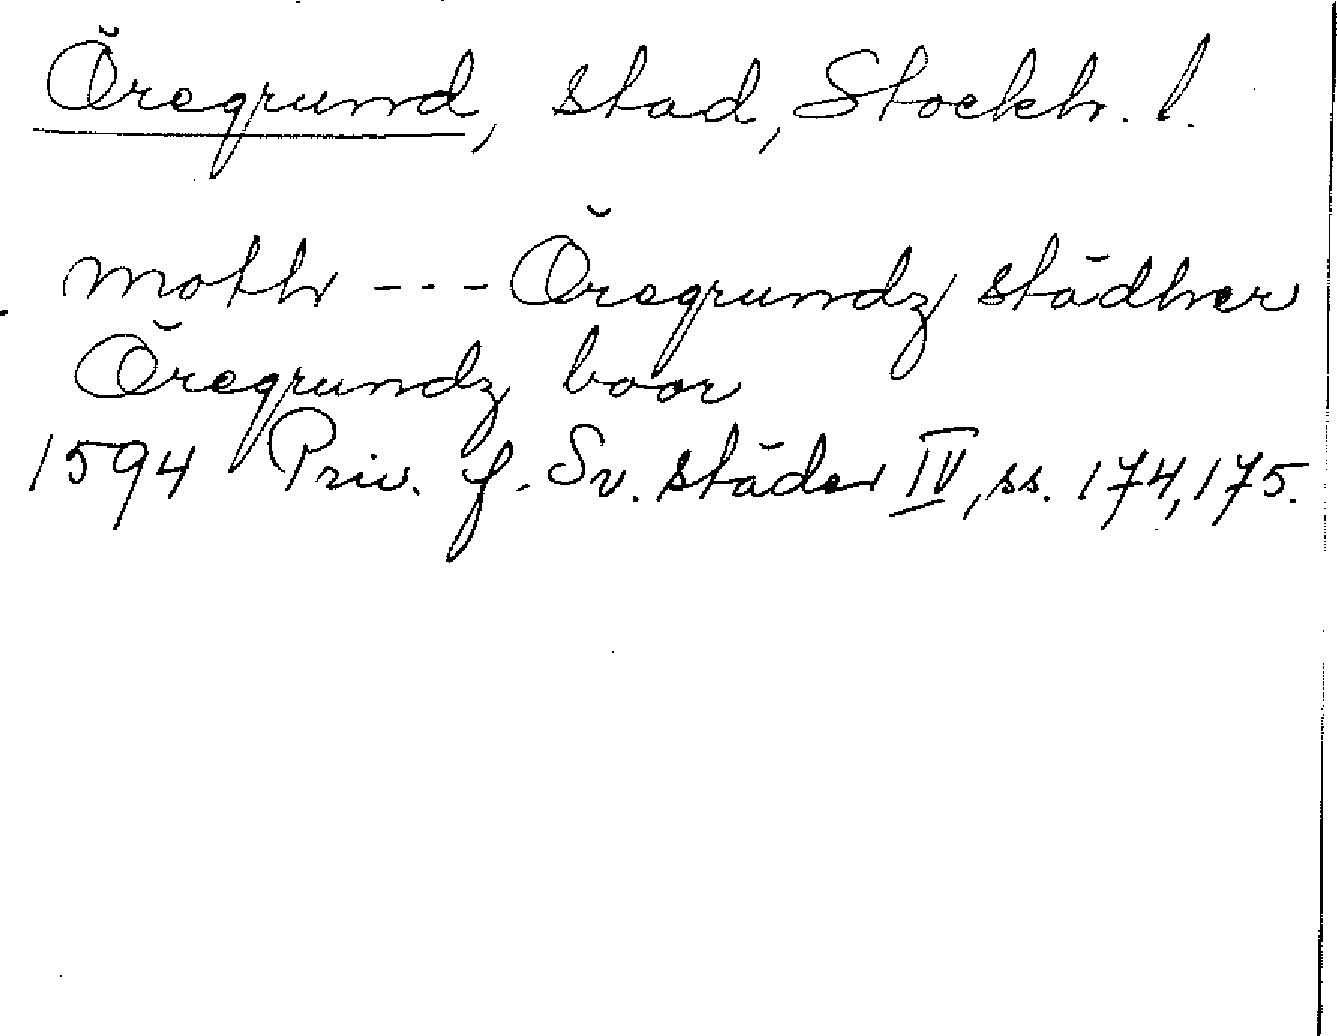 Öregrund, stad, Stockh. l.
moth --- Öregrundz städher
Öregrundz boar
1594 Priv. f. Sv. städer IV, ss. 174, 175.